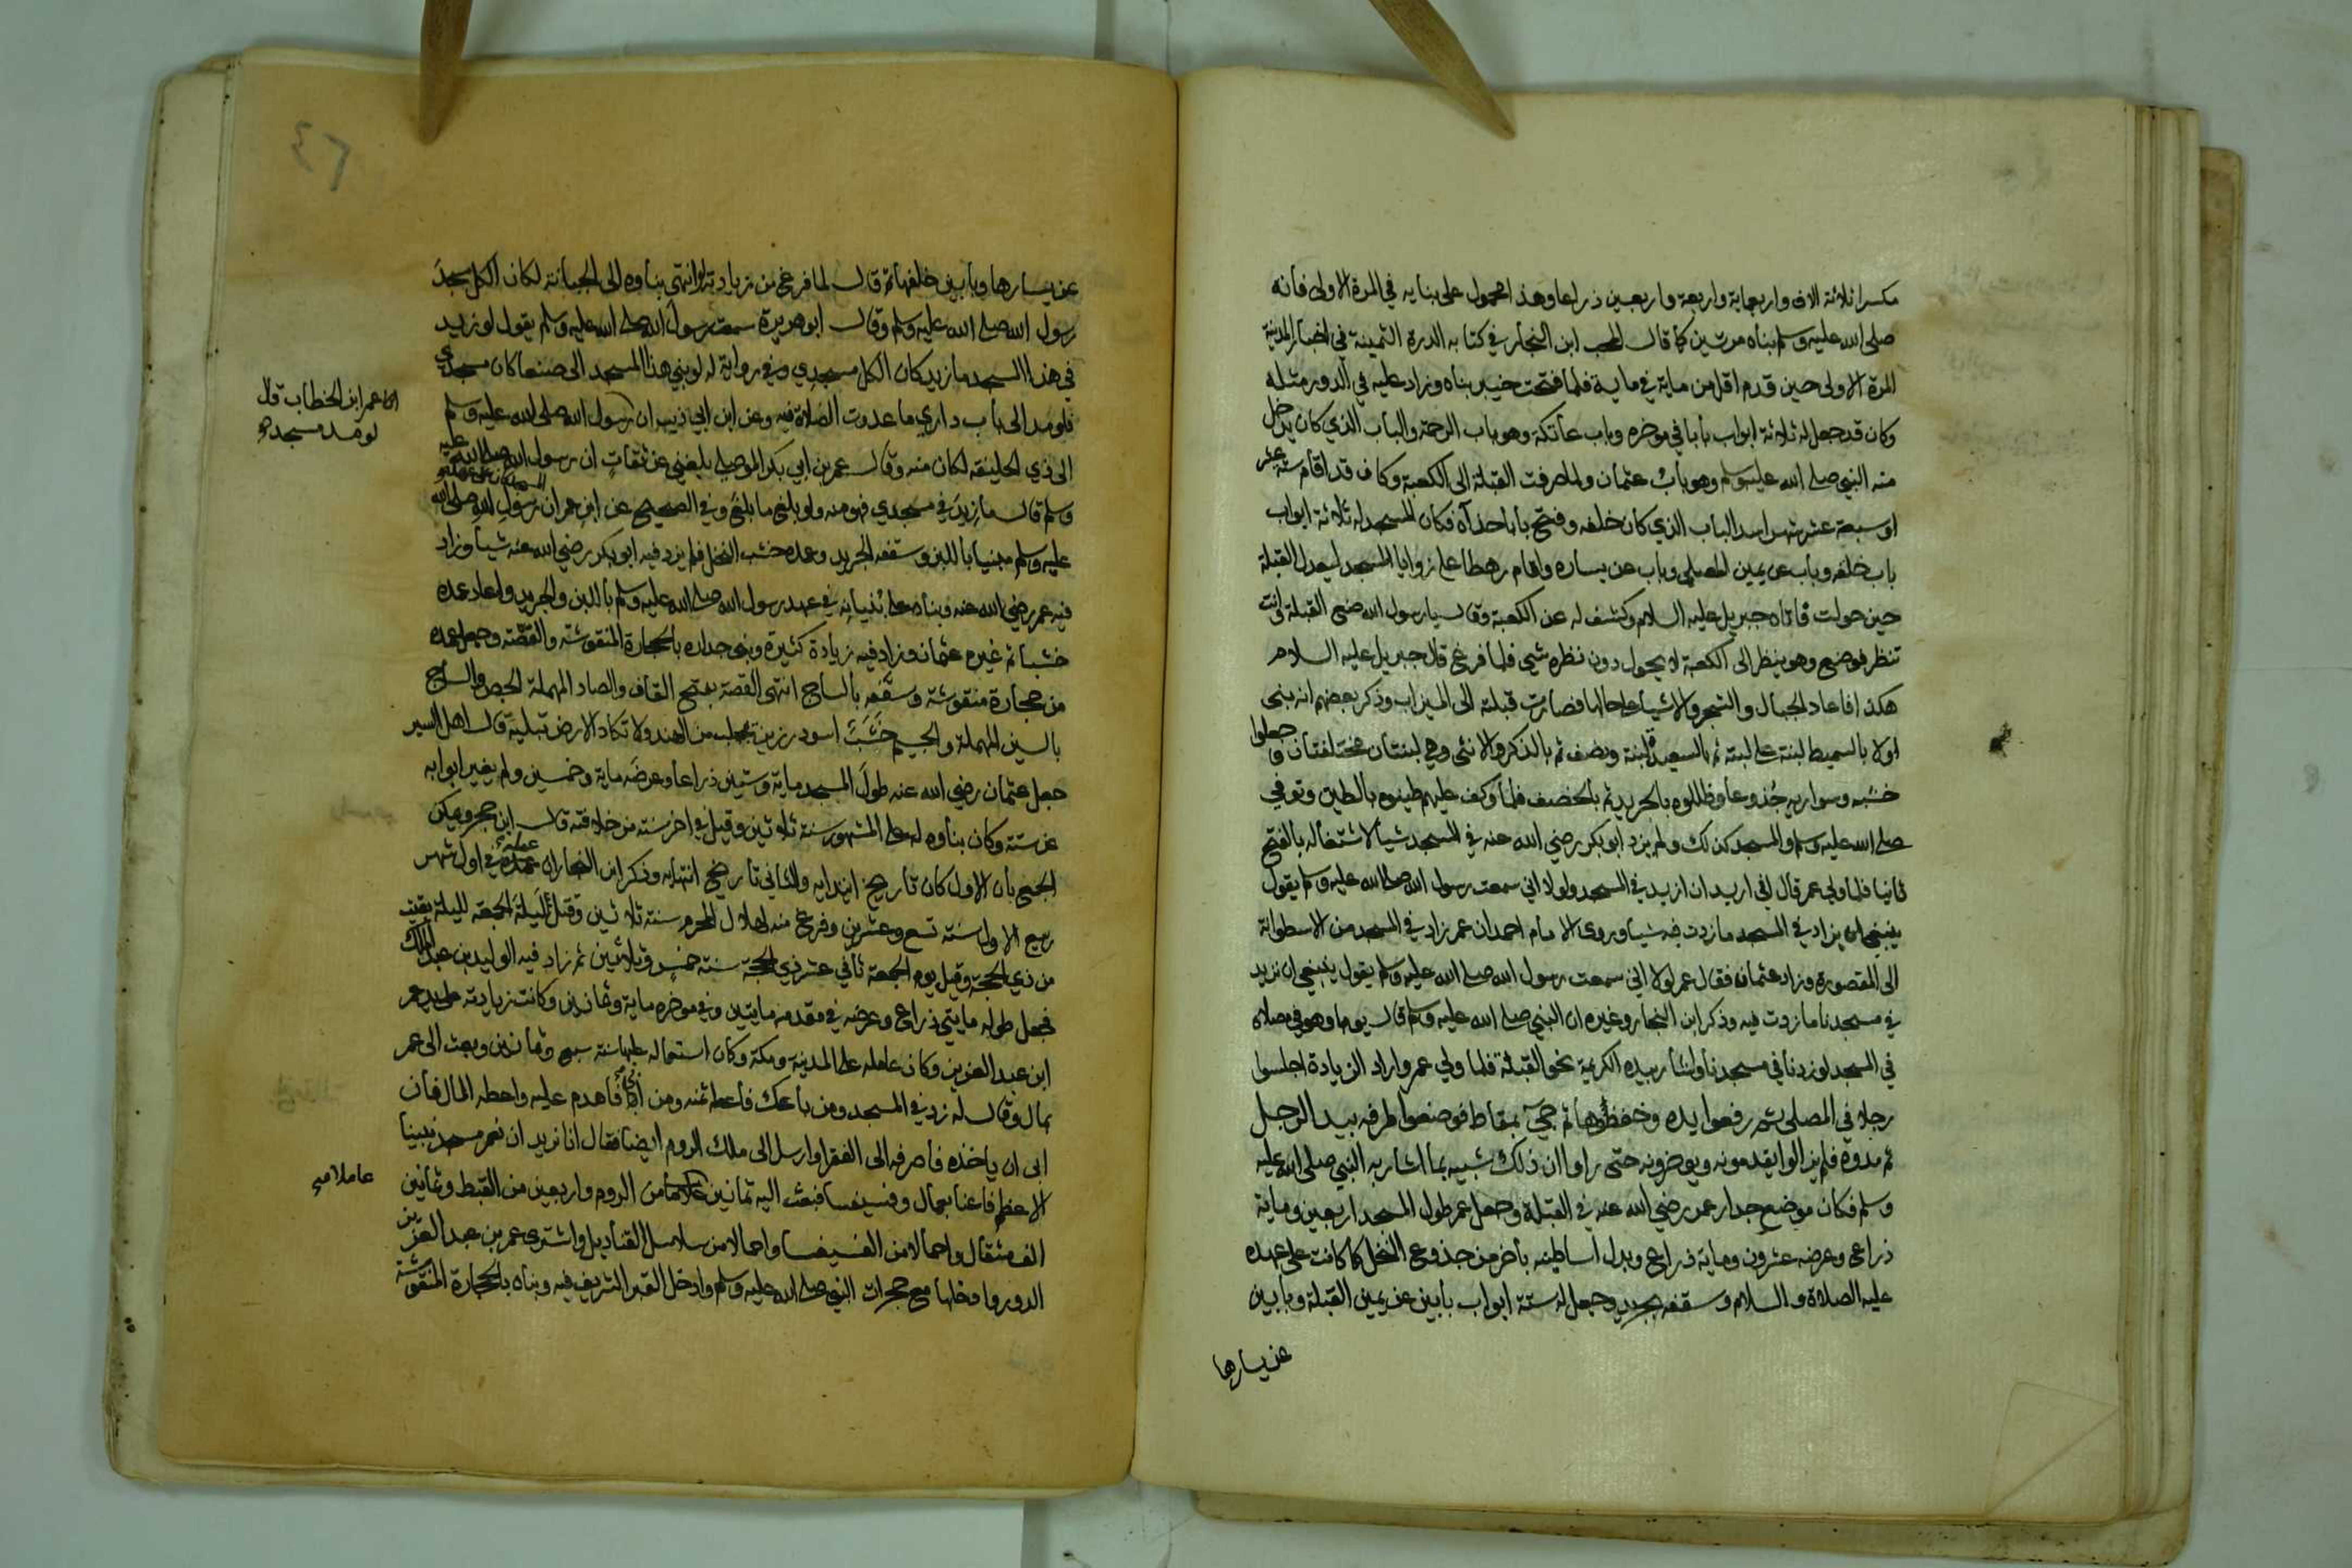 مكسرا ثلاثة الاف واربعماية واربعة واربعين ذراعا وهذا محمول على بنايه في المرة الاولى فانه
صلى الله عليه وسلم بناه مرتين كما قال المحب ابن النجار في كتابه الدرة الثمينة في اخبار المدينة
المرة الاولى حين قدم اقل من ماية في ماية فلما فتحت خيبر بناه وزاد عليه في الدور مثله
وكان قد جعل له ثلاثة ابواب بابا في موخره وباب عاتكة وهو باب الرحمة والباب الذي كان يدخل
منه النبي صلى الله عليه وسلم وهو باب عثمان ولما صرفت القبلة الى الكعبة وكان قد اقام ستة عشر
او سبعة عشر شهرا سد الباب الذي كان خلفه وفتح بابا حذاه فكان المسجد له ثلاثة ابواب
باب خلفه وباب عن يمين المصلي وباب عن يساره واقام رهطا على زوايا المسجد ليعدل القبلة
حين حولت فاتاه جبريل عليه السلام وكشف له عن الكعبة وقال يا رسول الله ضع القبلة وانت
تنظر فوضع وهو ينظر الى الكعبة لا يحول دون نظره شي فلما فرغ قال جبريل عليه السلام
هكذا فاعاد الجبال والشجر والاشيا على حالها فصارت قبلته الى الميزاب وذكر بعضهم انه بنى
اولا بالسميط لبنة على لبنة ثم بالسعيدة لبنة ونصف ثم بالذكر والانثى وهي لبنتان مختلفتان وجعلوا
خشبه وسواريه جذوعا وظللوه بالجريد ثم بالخصف فلما وكف عليهم طينوه بالطين وتوفي
صلى الله عليه وسلم والمسجد كذلك ولم يزد ابو بكر رضي الله عنه في المسجد شيا لاشتغاله بالفتح
ثانيا فلما ولى عمر قال اني اريد ان ازيد في المسجد ولولا اني سمعت رسول الله صلى الله عليه وسلم يقول
ينبغي ان يزاد في المسجد ما زدت فيه شيا وروى الامام احمد ان عمر زاد في المسجد من الاسطوانة
الى المقصورة وزاد عثمان فقال عمر لولا اني سمعت رسول الله صلى الله عليه وسلم يقول ينبغي ان نزيد
في مسجدنا ما زدت فيه وذكر ابن النجار وغيره ان النبي صلى الله عليه وسلم قال يوما وهو في مصلاه
في المسجد لو زدنا في مسجدنا واشار بيده الكريمة نحو القبلة فلما ولي عمر واراد الزيادة اجلسوا
رجلا في المصلى ثم رفعوا يده وخفظوها ثم جيء بمقاط فوضعوا طرفه بيد الرجل
ثم مدوه فلم يزالوا يقدمونه ويوخرونه حتى راوا ان ذلك شبيه بما اشار به النبي صلى الله عليه
وسلم فكان موضع جدار عمر رضي الله عنه في القبلة وجعل عمر طول المسجد اربعين وماية
ذراع وعرضه عشرون وماية ذراع وبدل اساطينه باخر من جذوع النخل كما كانت على عهده
عليه الصلاة والسلام وسقفه بجريد وجعل له ستة ابواب بابين عن يمين القبلة وبابين
عن يسارها
عن يسارها وبابين خلفها ثم قال لما فرغ من زيادته لو انتهى بناوه الى الجبانة لكان الكل مسجد
رسول الله صلى الله عليه وسلم وقال ابو هريرة سمعت رسول الله صلى الله عليه وسلم يقول لو زيد
في هذا المسجد ما زيد كان الكل مسجدي وفي رواية له لو بني هذا المسجد الى صنعا كان مسجدي
فلو مد الى باب داري ما عدوت الصلاة فيه وعن ابن ابي ذيب ان رسول الله صلى الله عليه وسلم
ان عمر ابن الخطاب قال
لو مد مسجد
الى ذي الحليفة لكان منه وقال عمر بن ابي بكر الموصلي بلغني عن ثقات ان رسول الله صلى الله عليه
وسلم قال ما زيد في مسجدي فهو منه ولو بلغ ما بلغ وفي الصحيح عن ابن عمر ان رسول الله صلى الله
عليه وسلم مبنيا باللبن وسقفه الجريد وعمده خشب النخل فلم يزد فيه ابو بكر رضي الله عنه شيا وزاد
فيه عمر رضي الله عنه وبناه على بنيانه في عهد رسول الله صلى الله عليه وسلم باللبن والجريد واعاد عمده
خشبا ثم غيره عثمان وزاد فيه زيادة كثيرة وبنى جداره بالحجارة المنقوشة والقصة وجعل عمده
من حجارة منقوشة وسقفه بالساج انتهى القصة بفتح القاف والصاد المهملة الجص والساج
بالسين المهملة والجيم خشب اسود رزين يجلب من الهند ولا تكاد الارض تبليه قال اهل السير
جعل عثمان رضي الله عنه طول المسجد ماية وستين ذراعا وعرضه ماية وخمسين ولم يغير ابوابه
عن ستة وكان بناوه له على المشهور سنة ثلاثين وقيل في اخر سنة من خلافته قال ابن حجر ويمكن
الجمع بان الاول كان تاريخ ابتدايه والثاني تاريخ انتهايه وذكر ابن النجار ان عمله في اول شهر
ربيع الاول سنة تسع وعشرين وفرغ منه لهلال المحرم سنة ثلاثين وقتل ليلة الجمعة لليلة بقيت
من ذي الحجة وقيل يوم الجمعة ثاني عشر ذي الحجة سنة خمس وثلاثين ثم زاد فيه الوليد بن عبد الملك
فجعل طوله مايتي ذراع وعرضه في مقدمه مايتين وفي موخره ماية وثمانين وكانت زيادته على يد عمر
ابن عبد العزيز وكان عامله على المدينة ومكة وكان استعماله عليها سنة سبع وثمانين وبعث الى عمر
بمال وقال له زد في المسجد ومن باعك فاعطه ثمنه ومن ابى فاهدم عليه واعطه المال فان
ابى ان ياخذه فاصرفه الى الفقرا وارسل الى ملك الروم ايضا فقال انا نريد ان نعمر مسجد نبينا
الاعظم فاعنا بعمال وفسيفسا فبعث اليه ثمانين عاملا من الروم واربعين من القبط وثمانين
عاملا صح
الف مثقال واحمالا من الفسيفسا واحمالا من سلاسل القناديل واشترى عمر بن عبد العزيز
الدور وادخلها مع حجرات النبي صلى الله عليه وسلم وادخل القبر الشريف فيه وبناه بالحجارة المنقوشة